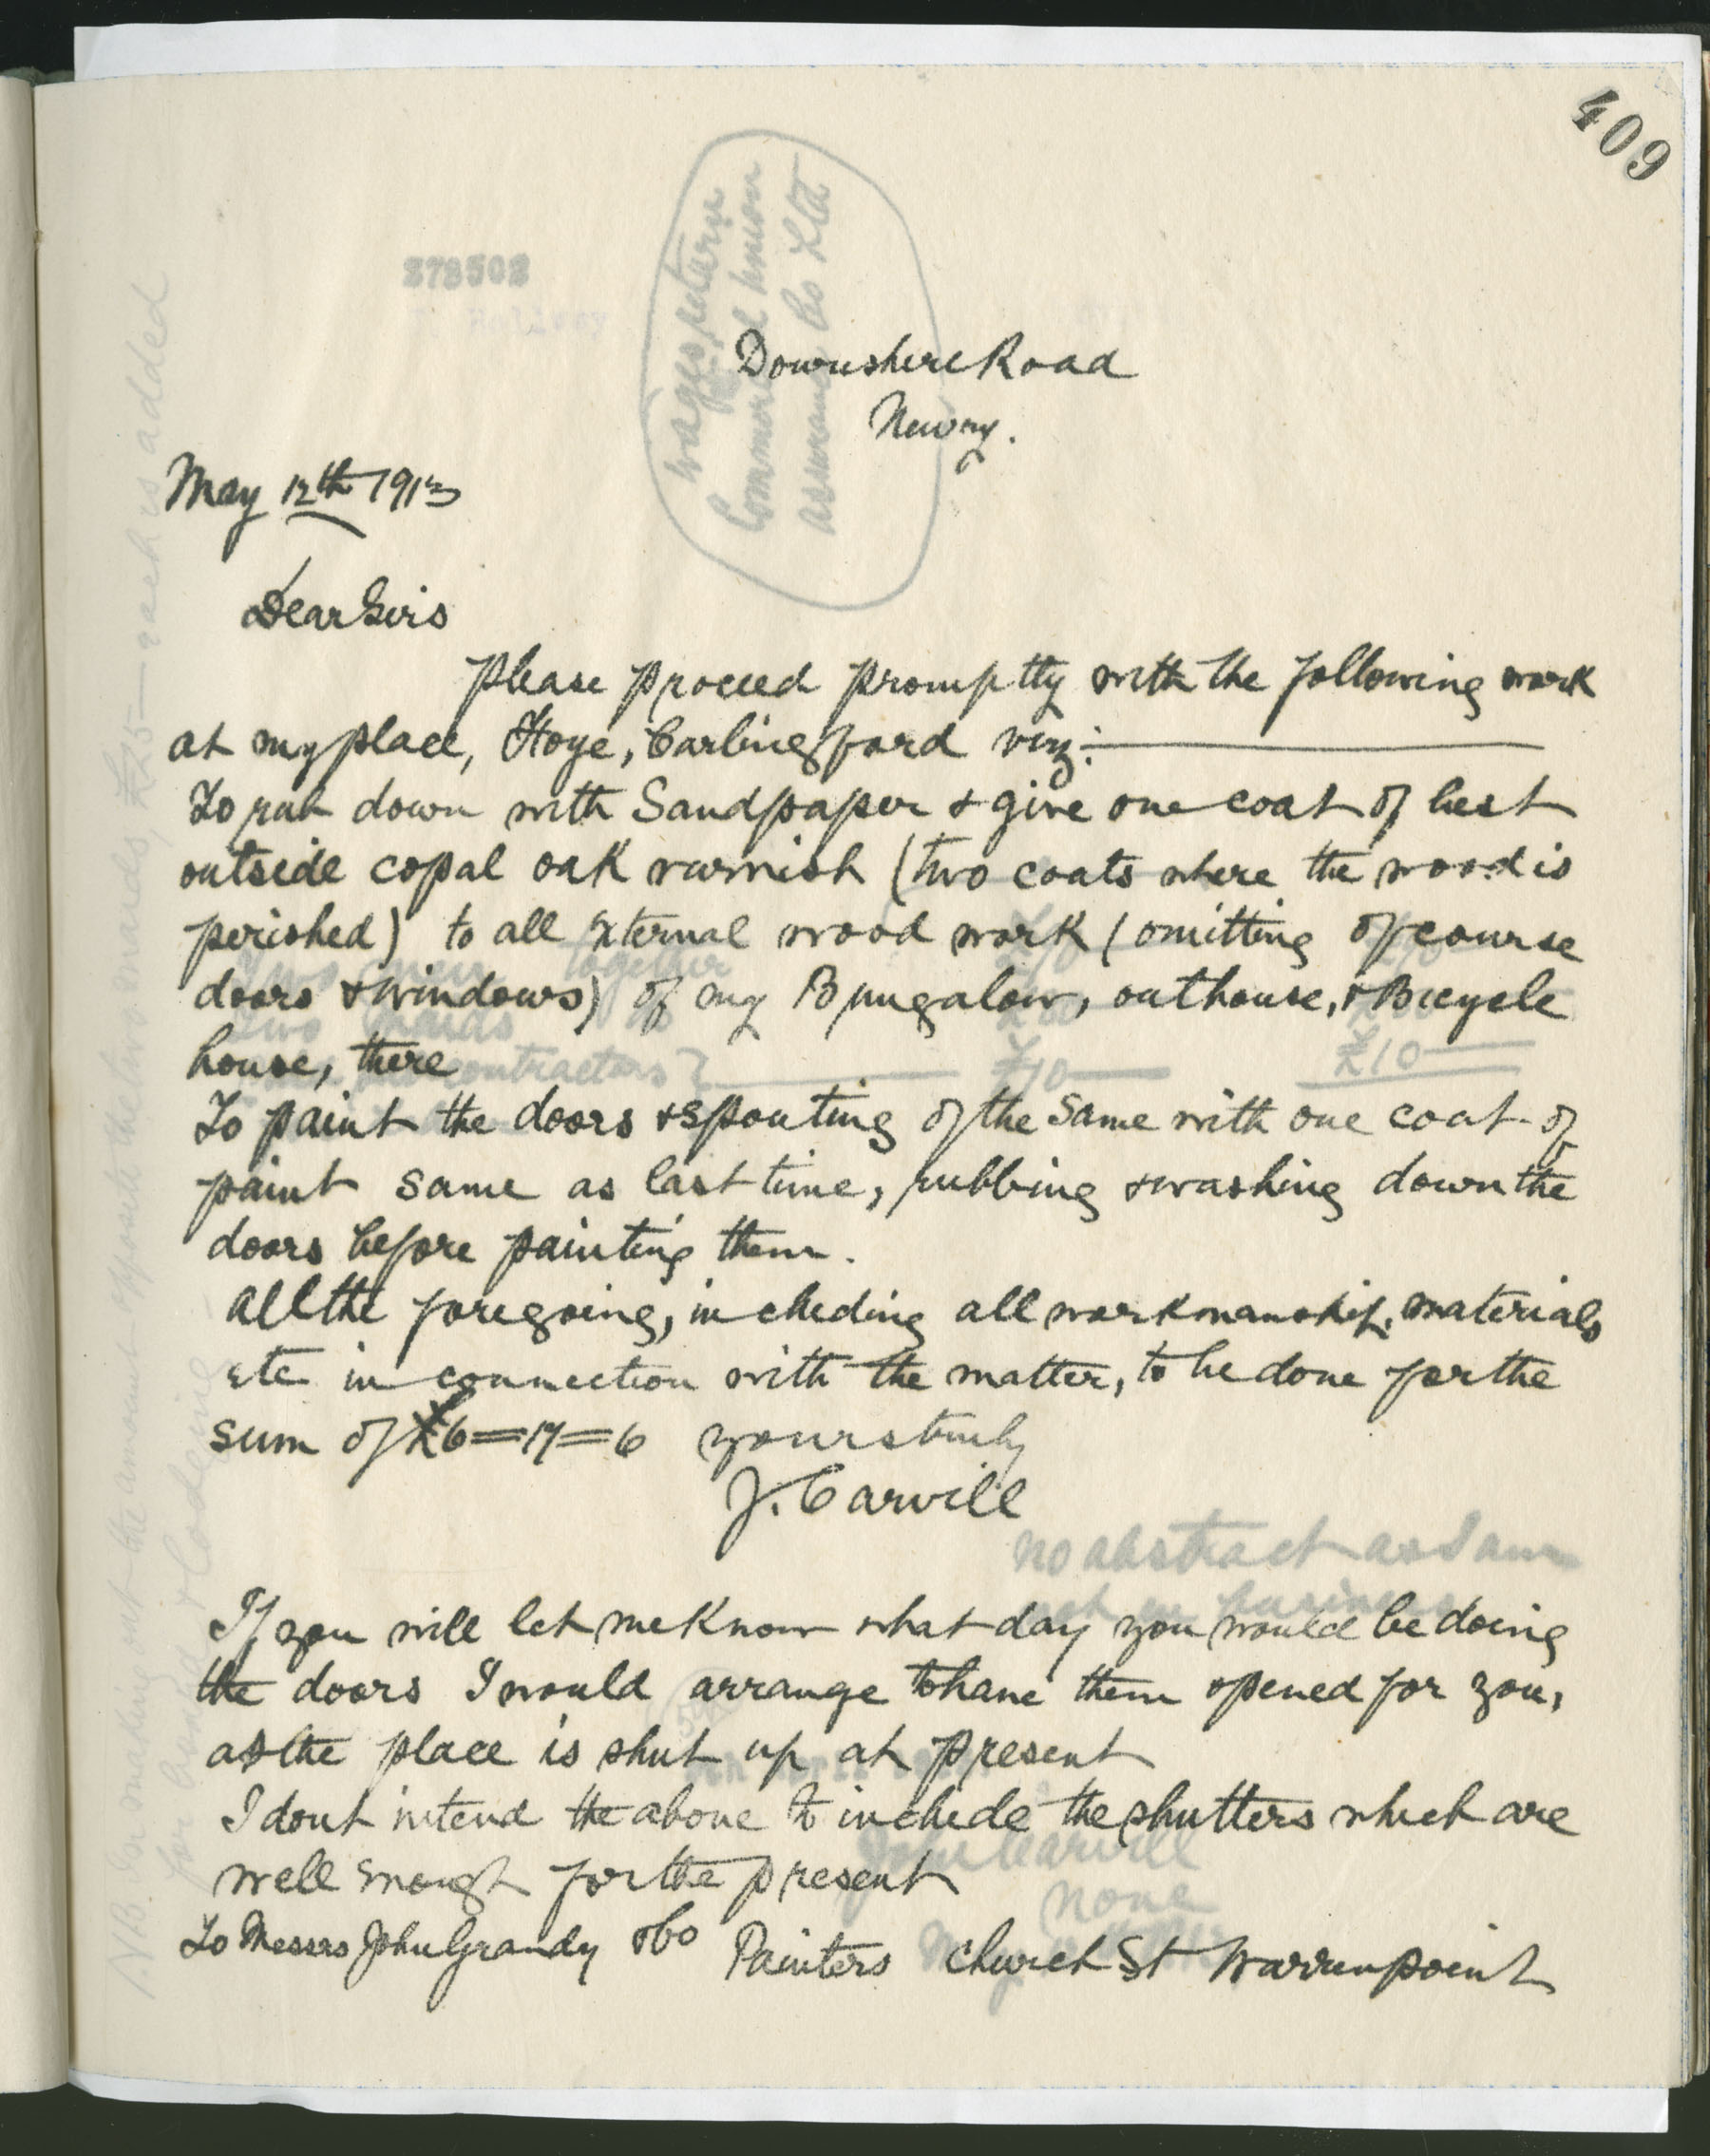 409
Downshire Road
Newry.
May 12th 1913
Dear Sirs
Please proceed promptly with the following work
at my place, Carlingford viz:—
To rub down with Sandpaper & give one coat of best
outside copal oak varnish (two coats where the wood is
perished) to all external wood work (omitting of course
doors & windows) of my Bungalow, outhouse, & Bicycle
house, there
To paint the doors & spouting of the same with one coat of
paint same as last time, rubbing & washing down the
doors before painting them.
All the foregoing, including all workmanship, materials
etc in connection with the matter, to be done for the
sum of £6=17=6 yours truly
J. Carvill
If you will let me know what day you would be doing
the doors I would arrange to have them opened for you,
as the place is shut up at present
I dont intend the above to include the shutters which are
well enough for the present
To Messrs John Grandy & Co Painters Church St Warrenpoint
278502
Wages return
Commercial Union
assurance Co Ltd
together
contractors} £10— £10—
no abstract as I am
John Carvill
none